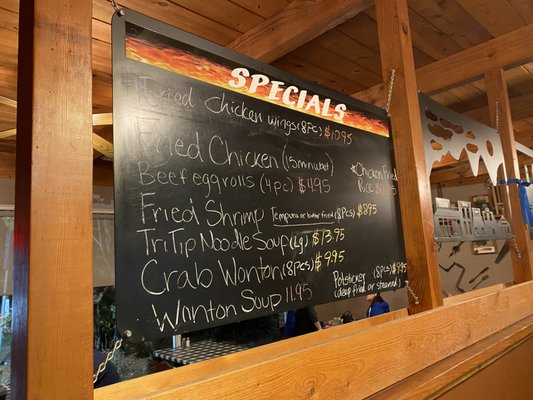 SPECIALS
Fried Chicken Wings (8pcs) $10.95
Fried Chicken (15min wait)
Beef eggrolls (4pc) $4.95
*Chicken Fried
Rice
Fried Shrimp Tempura or batter fried (8pcs) $8.95
Tri Tip Noodle Soup (Lg) $13.95
Crab Wonton (8pcs) $9.95
Potsticker (8pcs) $9.95
(deep fried or steamed)
Wonton Soup 11.95